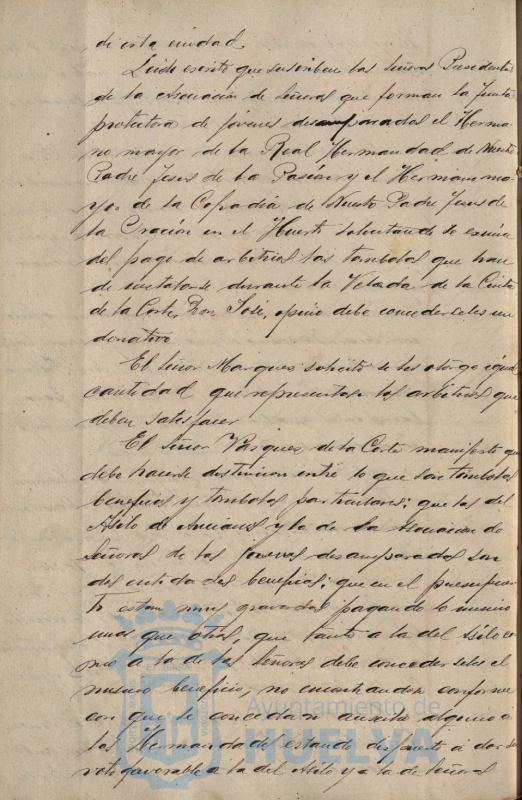 de esta ciudad.
Leido escrito que suscriben las Señoras Presidenta
de la Asociación de Señoras que forman la Junta
protectora de jóvenes desamparadas el Herma
no mayor de la Real Hermandad de Nuestro
Padre Jesus de la Pasión y el Hermano ma
yor de la Cofradia de Nuestro Padre Jesus de
la Oración en el Huerto solicitando se exima
del pago de arbitrios las tombolas que han
de instalarse durante la Velada de la Cinta
de la Corte, Don José, opinó debe concederseles un
donativo
El Señor Marques solicitó se les otorgue igual
cantidad que representan los arbitrios que
deben satisfacer
El Señor Vázquez de la Corte manifestó que
debe hacerse distincion entre lo que son tombolas
beneficas y tombolas particulares: que las del
Asilo de Ancianos y la de la Asociacion de
Señoras de las jovenes desamparadas son
dos entidades beneficas; que en el presupues
to estan muy gravadas pagando lo mismo
unas que otras, que tanto a la del Asilo co
mo a la de las Señoras debe concederseles el
mismo beneficio, no encontrandose conforme
con que se concedan auxilio alguno a
las Hermandades estando dispuesto á dar su
voto favorable a la del Asilo y a la de Señoras
Ayuntamiento de
HUELVA